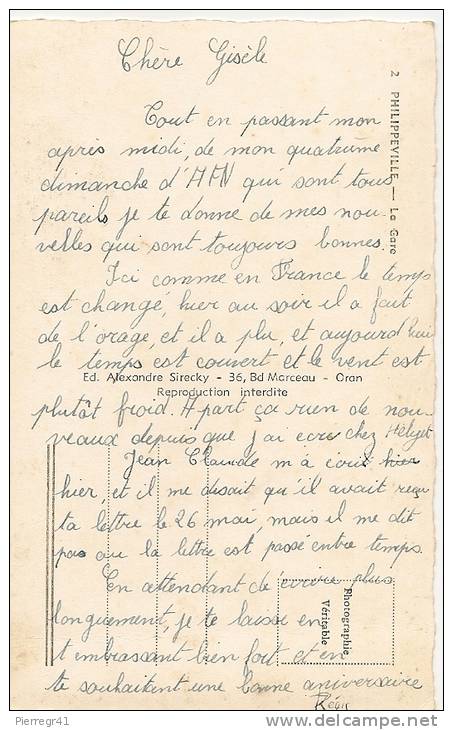 Chère Gisèle
Tout en passant mon
après midi, de mon quatrième
dimanche d'AFN qui sont tous
pareils je te donne de mes nou-
velles qui sont toujours bonnes.
Ici comme en France le temps
est changé, hier au soir il a fait
de l'orage, et il a plu, et aujourd'hui
le temps est couvert et le vent est
Ed. Alexandre Sirecky - 36, Bd Marceau - Oran
Reproduction interdite
plutôt froid. A part ça rien de nou-
veaux depuis que j'ai ecris chez
Jean Claude m'a écrit hier
hier, et il me disait qu'il avait reçu
ta lettre le 26 mai, mais il me dit
pas ou la lettre est passé entre temps.
En attendant de écrire plus
longuement, je te laisse en
t'embrassant bien fort et en
te souhaitant une bonne aniversaire
Régis
2 PHILIPPEVILLE — La Gare
Photographie
Véritable
Pierregr41
delcampe.net